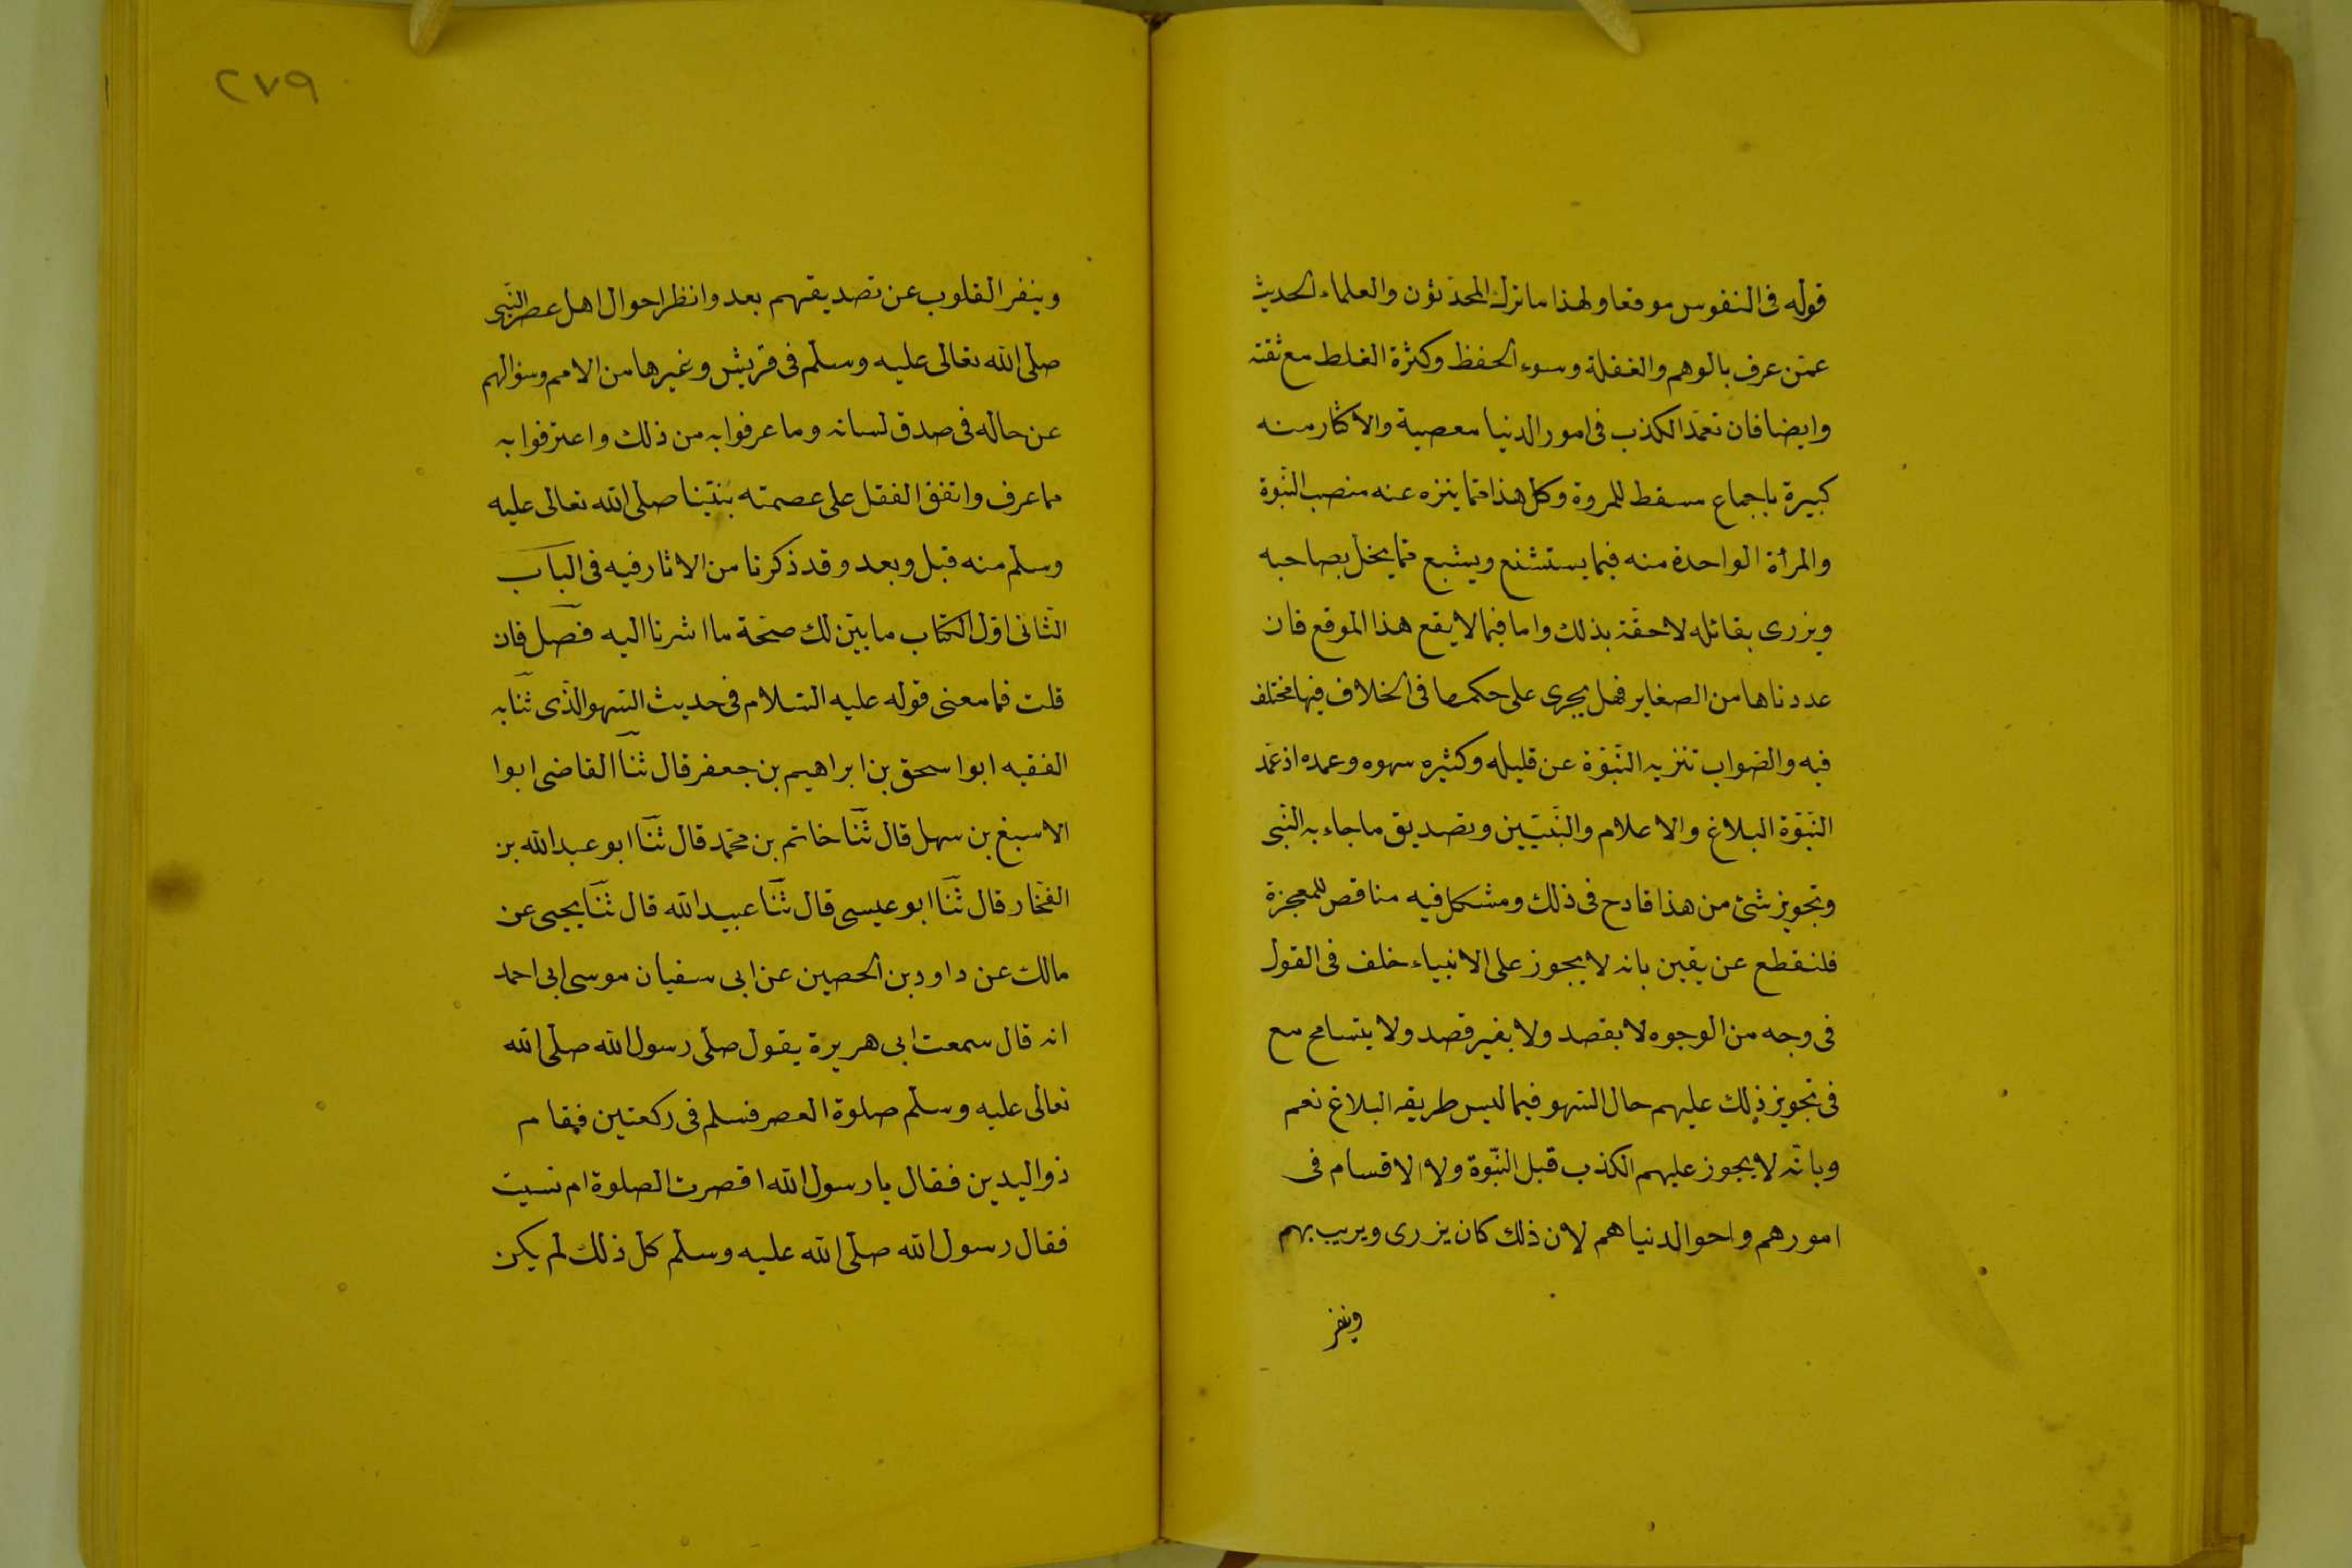 قوله فى النفوس موقعا ولهذا ما ترك المحدّثون والعلماء الحديث
عمّن عرف بالوهم والغفلة وسوء الحفظ وكثرة الغلط مع ثقته
وايضا فان تعمّد الكذب فى امور الدنيا معصية والاكثار منه
كبيرة باجماع مسقط للمروة وكل هذا ممّا ينزه عنه منصب النّبوة
والمرأة الواحدة منه فيما يستشنع ويشبع ممّا يخل بصاحبه
ويزرى بقائله لاحقة بذلك واما فيما لا يقع هذا الموقع فان
عددناها من الصغاير فهل يجرى على حكمها فى الخلاف فيها مختلف
فيه والصّواب تنزيه النّبوّة عن قليله وكثيره سهوه وعمده اذ عمّد
النّبوّة البلاغ والاعلام والنّبيّين وتصديق ما جاء به النّبى
وتجويز شئ من هذا قادح فى ذلك ومشكل فيه مناقص للمعجزة
فلنقطع عن يقين بانه لا يجوز على الانبياء خلف فى القول
فى وجه من الوجوه لا بقصد ولا بغير قصد ولا يتسامح مع
فى تجويز ذلك عليهم حال السّهو فيما ليس طريقه البلاغ نعم
وبانّه لا يجوز عليهم الكذب قبل النّبّوة ولا الاقسام فى
امورهم واحوال دنياهم لان ذلك كان يزرى ويريب بهم
وينفر
٢٧٩
وينفر القلوب عن تصديقهم بعد وانظر احوال اهل عصر النّبى
صلى الله تعالى عليه وسلم فى قريش وغيرها من الامم وسؤالهم
عن حاله فى صدق لسانه وما عرفوا به من ذلك واعترفوا به
مما عرف واتفق الفقل على عصمته بنيّنا صلى الله تعالى عليه
وسلم منه قبل وبعد وقد ذكرنا من الاثار فيه فى الباب
الثّانى اوّل الكتاب ما بيّن لك صحّة ما اشرنا اليه فصل فان
قلت فما معنى قوله عليه السّلام فى حديث السّهو الذّى ثنا به
الفقيه ابوا سحق بن ابراهيم بن جعفر قال ثنا القاضى ابوا
الاسبغ بن سهل قال ثنا خاتم بن محمّد قال ثنا ابو عبد الله بن
الفخّار قال ثنا ابو عيسى قال ثنا عبيد الله قال ثنا يحيى عن
مالك عن داود بن الحصين عن ابى سفيان موسى ابى احمد
انه قال سمعت ابى هريرة يقول صلى رسول الله صلى الله
تعالى عليه وسلم صلوة العصر فسلم فى ركعتين فقام
ذو اليدين فقال يا رسول الله اقصرت الصلوة ام نسيت
فقال رسول الله صلى الله عليه وسلم كل ذلك لم يكن